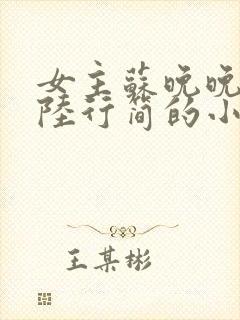 女主蘇晚晚
陸行简的小
王某彬